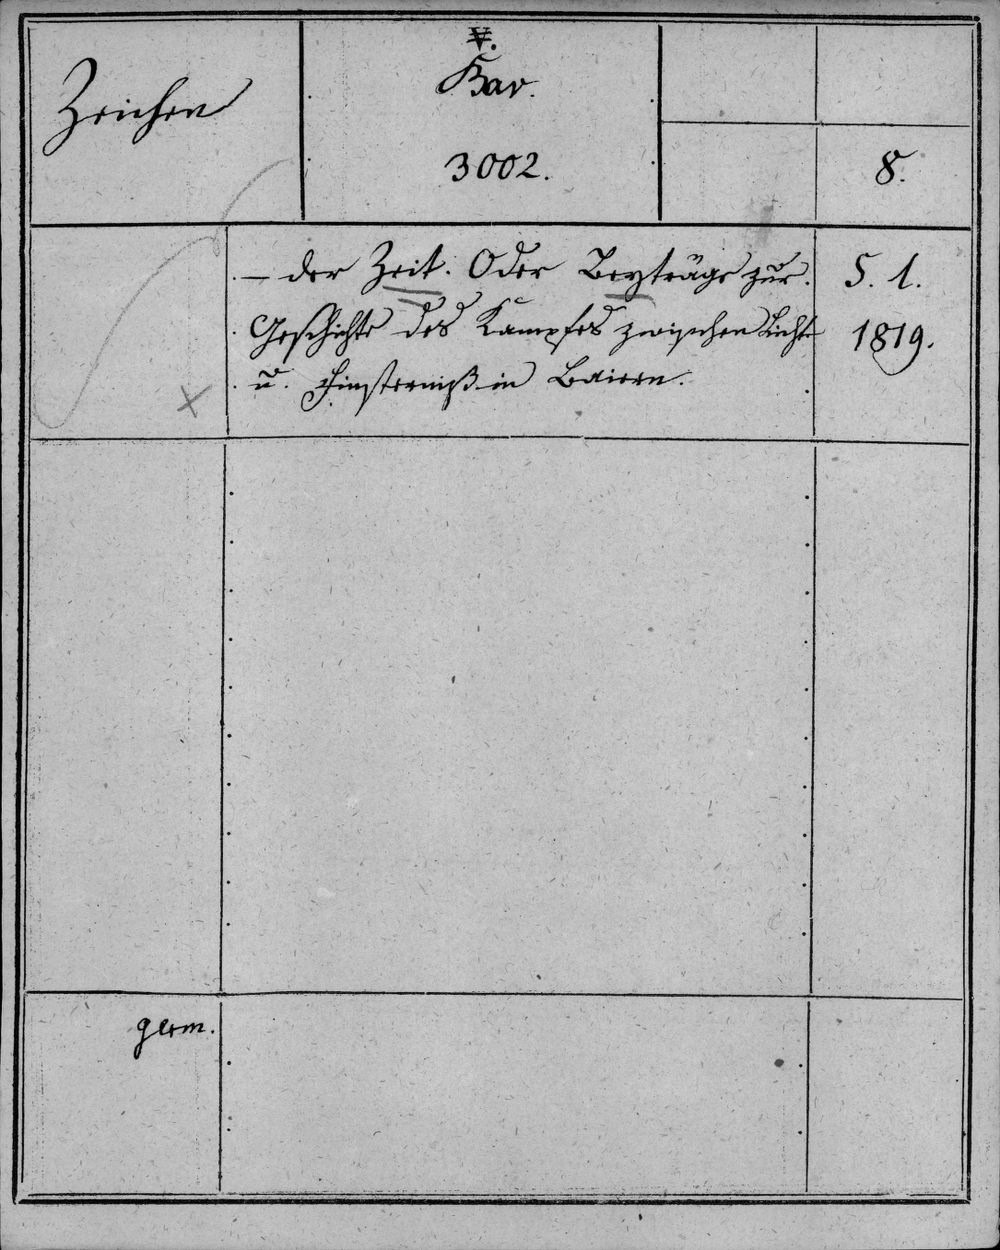 Zeichen
V.
Bav.
3002.
8.
— der Zeit. Oder Beyträge zur
Geschichte des Kampfes zwischen Licht
u. Finsterniß in Baiern.
S. l.
1819.
germ.